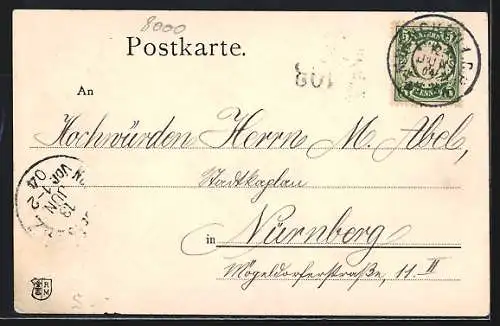 8000
Postkarte.
An
Hochwürden Herrn M. Abel,
Stadtkaplan
in Nürnberg
Mögeldorferstraße, 11 II
13
JUN
1-2
04